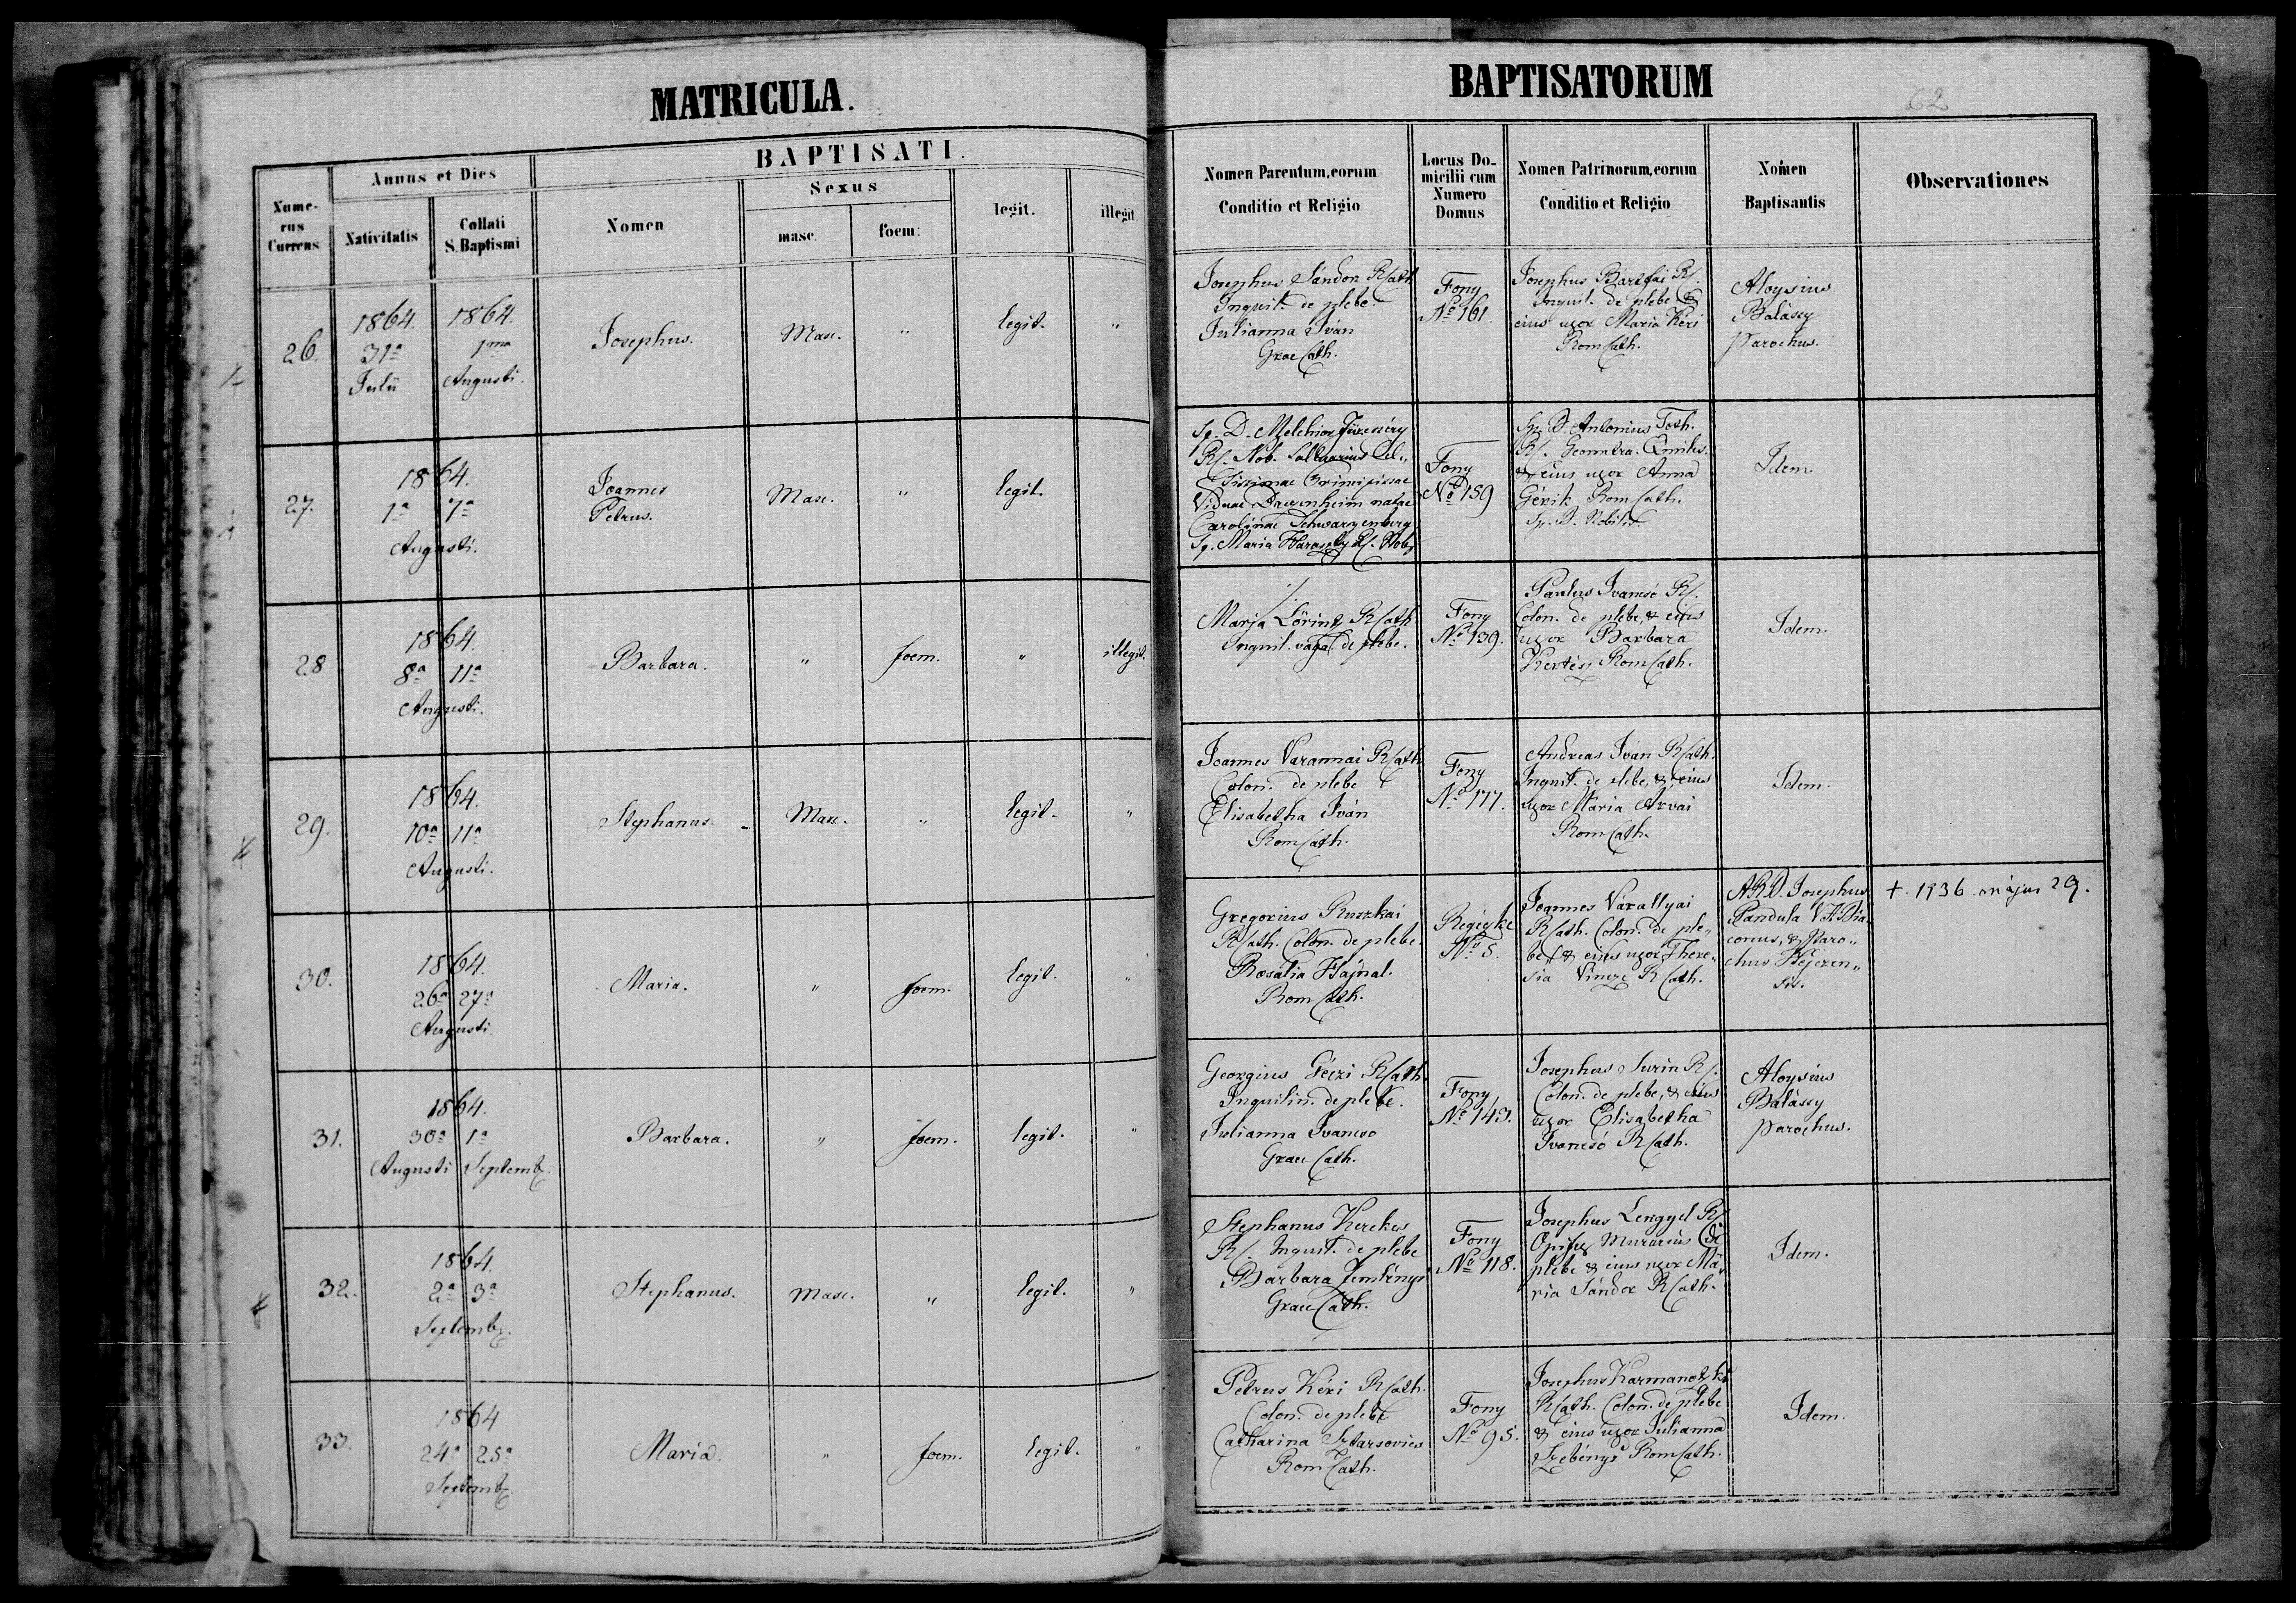 MATRICULA.
BAPTISATORUM
62
BAPTISATI.
Annus et Dies
Sexus
Nume-
rus
Currens
Nativitatis
Collati
S. Baptismi
Nomen
masc.
foem:
legit.
illegit.
Nomen Parentum, eorum
Conditio et Religio
Locus Do-
micilii cum
Numero
Domus
Nomen Patrinorum, eorum
Conditio et Religio
Nomen
Baptisantis
Observationes
26.
1864.
31ª
Julii
1864.
1ma
Augusti.
Josephus.
Masc.
"
legit.
"
Josephus Sándor R Cath
Inquil. de plebe.
Julianna Iván
Grae Cath.
Fony
No 161.
Josephus Bártfai RC.
Inquil. de plebe &
eius uxor Maria Kéri
Rom Cath.
Aloysius
Balássy
Parochus.
27.
1864.
1ª 7ª
Augusti.
Joannes
Petrus.
Masc.
"
legit.
Sp. D. Melchior
RC. Nob.
Viduae natae
Carolinae Schwarzenberg
Sp. Maria RC. Nob.
Fony
No 159
Sp. D. Antonius Toth.
RC. Geometra.
& eius uxor Anna
Gérik Rom Cath.
Sp. D. Nobilis
Idem.
28
1864.
8ª 11ª
Augusti.
Barbara.
"
foem.
"
illegit.
Maria Lörintz R Cath
Inquil. vaga de plebe.
Fony
No 139.
Paulus Ivancsó RC.
Colon. de plebe, & eius
uxor Barbara
Kertész Rom Cath.
Idem.
29.
1864.
10ª 11ª
Augusti.
Stephanus.
Masc.
"
legit.
"
Joannes Varannai R Cath
Colon. de plebe
Elisabetha Iván
Rom Cath.
Fony
No 177.
Andreas Iván R Cath.
Inquil. de plebe, & eius
uxor Maria Árvai
Rom Cath.
Idem.
30.
1864.
26ª 27ª
Augusti
Maria.
"
foem.
legit.
"
Gregorius Ruszkai
R Cath. Colon. de plebe.
Rosalia Hajnal.
Rom Cath.
Regécke
No 5.
Joannes Várallyai
R Cath. Colon. de ple„
be, & eius uxor There„
sia Vincze R Cath.
A.R.D. Josephus
Pandula V.A.Dia
conus, & Paro„
chus Hejczen„
sis.
+. 1936. május 29.
31.
1864.
30ª 1ª
Augusti Septemb.
Barbara.
"
foem.
legit.
"
Georgius Géczi R Cath.
Inquilin. de plebe.
Julianna Ivancso
Grae Cath.
Fony
No 143.
Josephus Surin RC.
Colon. de plebe, & eius
uxor Elisabetha
Ivancsó R Cath.
Aloysius
Balássy
Parochus.
32.
1864.
2ª 3ª
Septemb.
Stephanus.
Masc.
"
legit.
"
Stephanus Kerekes
RC. Inquil. de plebe
Barbara Zemlényi
Grae Cath.
Fony
No 118.
Josephus Lengyel RC
Opifex Murarius de
plebe & eius uxor Ma„
ria Sándor R Cath.
Idem.
33.
1864
24ª 25ª
Septemb.
Maria.
"
foem.
legit.
"
Petrus Kéri R Cath.
Colon. de plebe
Catharina Sztarsovics
Rom Cath.
Fony
No 95.
Josephus Karmanotzki
R Cath. Colon. de plebe
& eius uxor Julianna
Szebényi Rom Cath.
Idem.